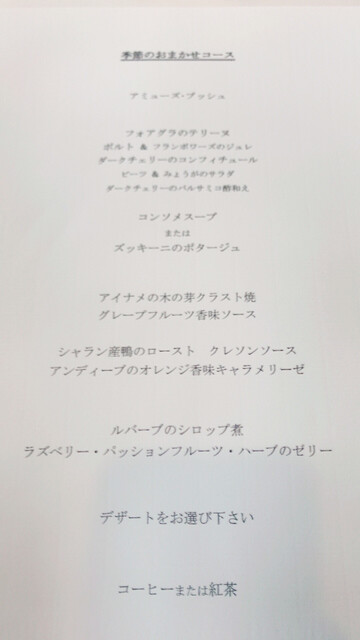 季節のおまかせコース
アミューズ・ブッシュ
フォアグラのテリーヌ
ポルト & フランボワーズのジュレ
ダークチェリーのコンフィチュール
ビーツ & みょうがのサラダ
ダークチェリーのバルサミコ酢和え
コンソメスープ
または
ズッキーニのポタージュ
アイナメの木の芽クラスト焼
グレープフルーツ香味ソース
シャラン産鴨のロースト　クレソンソース
アンディーブのオレンジ香味キャラメリーゼ
ルバーブのシロップ煮
ラズベリー・パッションフルーツ・ハーブのゼリー
デザートをお選び下さい
コーヒーまたは紅茶